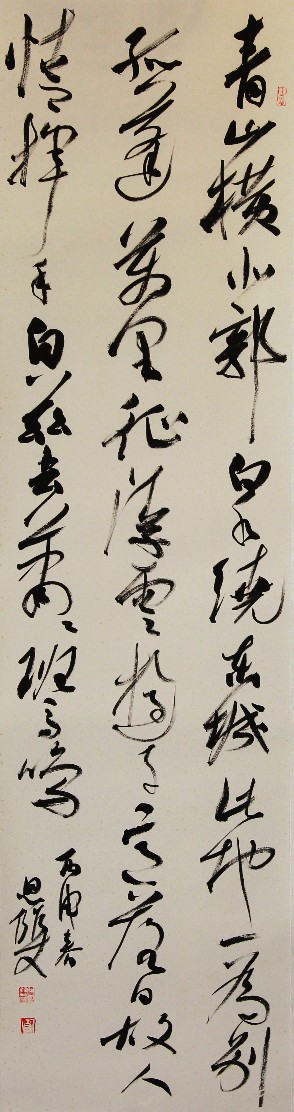 青山橫北郭白水繞東城此地一為別
孤蓬萬里征浮雲遊子意落日故人
情揮手自茲去蕭〻班馬鳴
丙申春